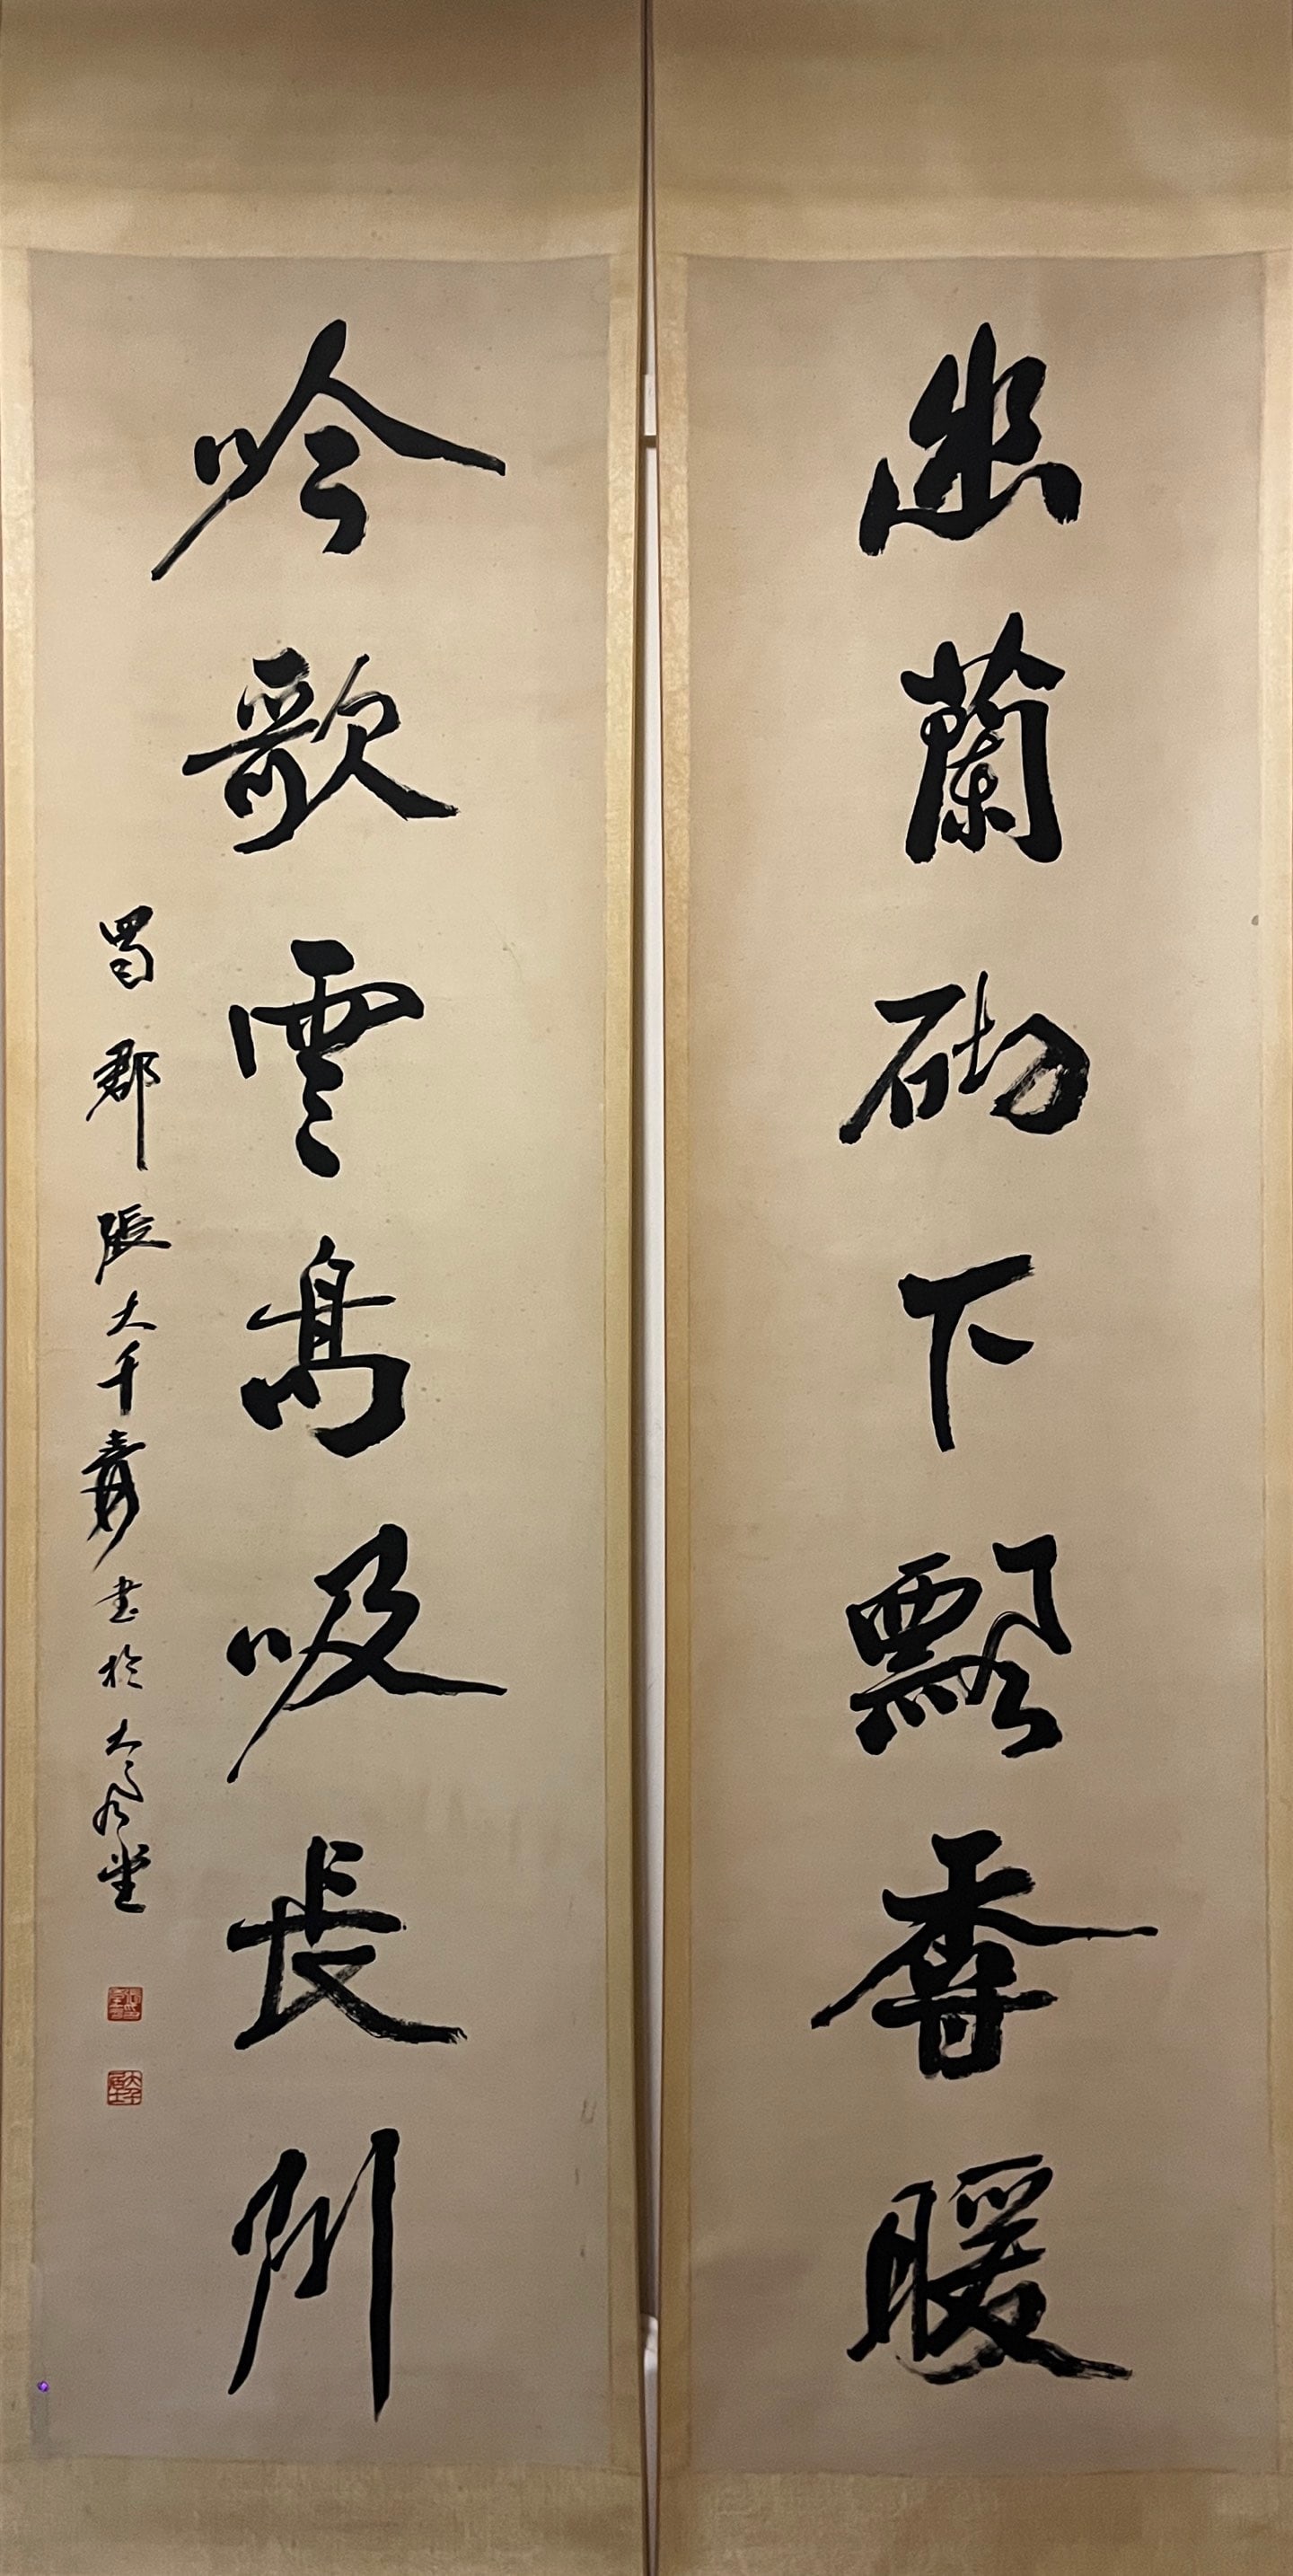 幽蘭砌下飄香暖
吟歌雲鳥吸長川
蜀郡張大千爰書於大風堂